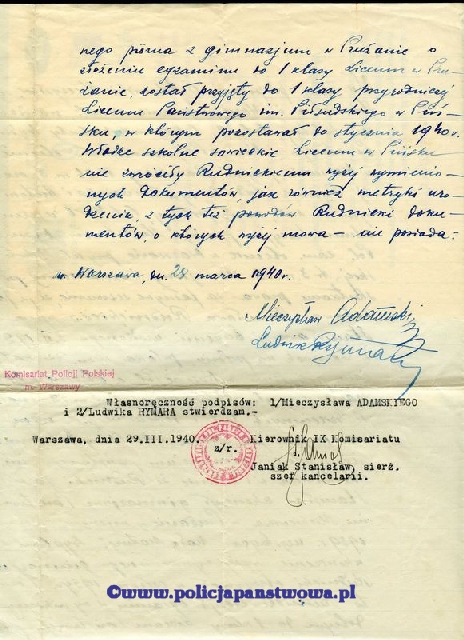 nego pisma z gimnazjum w Prużanie o
złożeniu egzaminu do 1 klasy Liceum w Pru-
żanie został przyjęty do 1 klasy przyrodniczej
Liceum Państwowego im. Piłsudskiego w Piń-
sku, w którym pozostawał do stycznia 1940 r.
Władze szkolne sowieckie Liceum w Pińsku
nie zwróciły Rudnickiemu wyżej wymienio-
nych dokumentów, jak również metryki uro-
dzenia, z tych też powodów Rudnicki doku-
mentów, o których wyżej mowa – nie posiada.
Warszawa, dn. 29 marca 1940 r.
Mieczysław Adamski
Ludwik Rymar
Komisariat Policji Polskiej
m. Warszawy
Własnoręczność podpisów: 1/Mieczysława ADAMSKIEGO
i 2/Ludwika RYMARA stwierdzam.-
Warszawa, dnia 29.III.1940. Kierownik IX Komisariatu
z/r.
Janiak Stanisław, sierż.
szef kancelarii.
©www.policjapanstwowa.pl